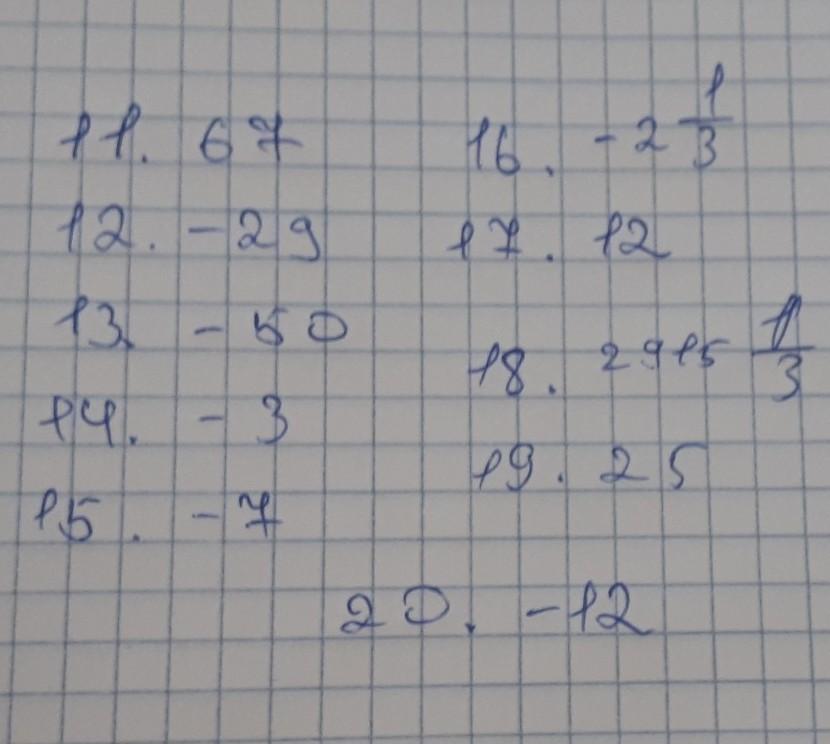 11. 67
12. -29
13. -50
14. -3
15. -7
16. -2 1/3
17. 12
18. 2915 1/3
19. 25
20. -12